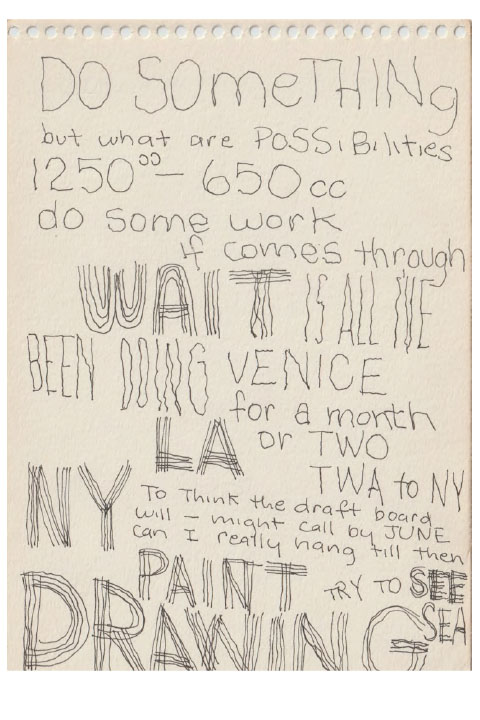 DO SOmeTHINg
but what are POSSiBilities
1250⁰⁰ - 650cc
do some work
if comes through
WAIT IS ALL I'VE
BEEN DOING VENICE
for a month
LA or TWO
NY TWA to NY
To Think the draft board
will - might call by JUNE
can I really hang till then
PAINT TRY TO SEE
DRAWING SEA